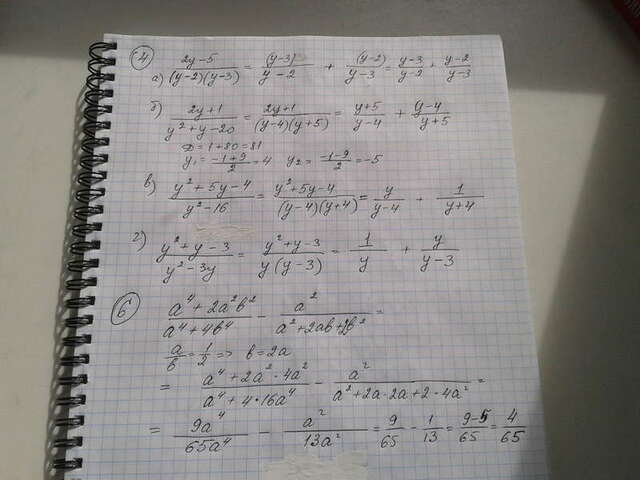 4
а) (2y-5)/((y-2)(y-3)) = (y-3)/(y-2) + (y-2)/(y-3) = (y-3)/(y-2) + (y-2)/(y-3)
б) (2y+1)/(y²+y-20) = (2y+1)/((y-4)(y+5)) = (y+5)/(y-4) + (y-4)/(y+5)
D = 1+80 = 81
y₁ = (-1+9)/2 = 4 y₂ = (-1-9)/2 = -5
в) (y²+5y-4)/(y²-16) = (y²+5y-4)/((y-4)(y+4)) = y/(y-4) + 1/(y+4)
г) (y²+y-3)/(y²-3y) = (y²+y-3)/(y(y-3)) = 1/y + y/(y-3)
6
(a⁴+2a²b²)/(a⁴+4b⁴) - a²/(a²+2ab+2b²) =
a/b = 1/2 => b = 2a
= (a⁴+2a²·4a²)/(a⁴+4·16a⁴) - a²/(a²+2a·2a+2·4a²) =
= 9a⁴/65a⁴ - a²/13a² = 9/65 - 1/13 = (9-5)/65 = 4/65